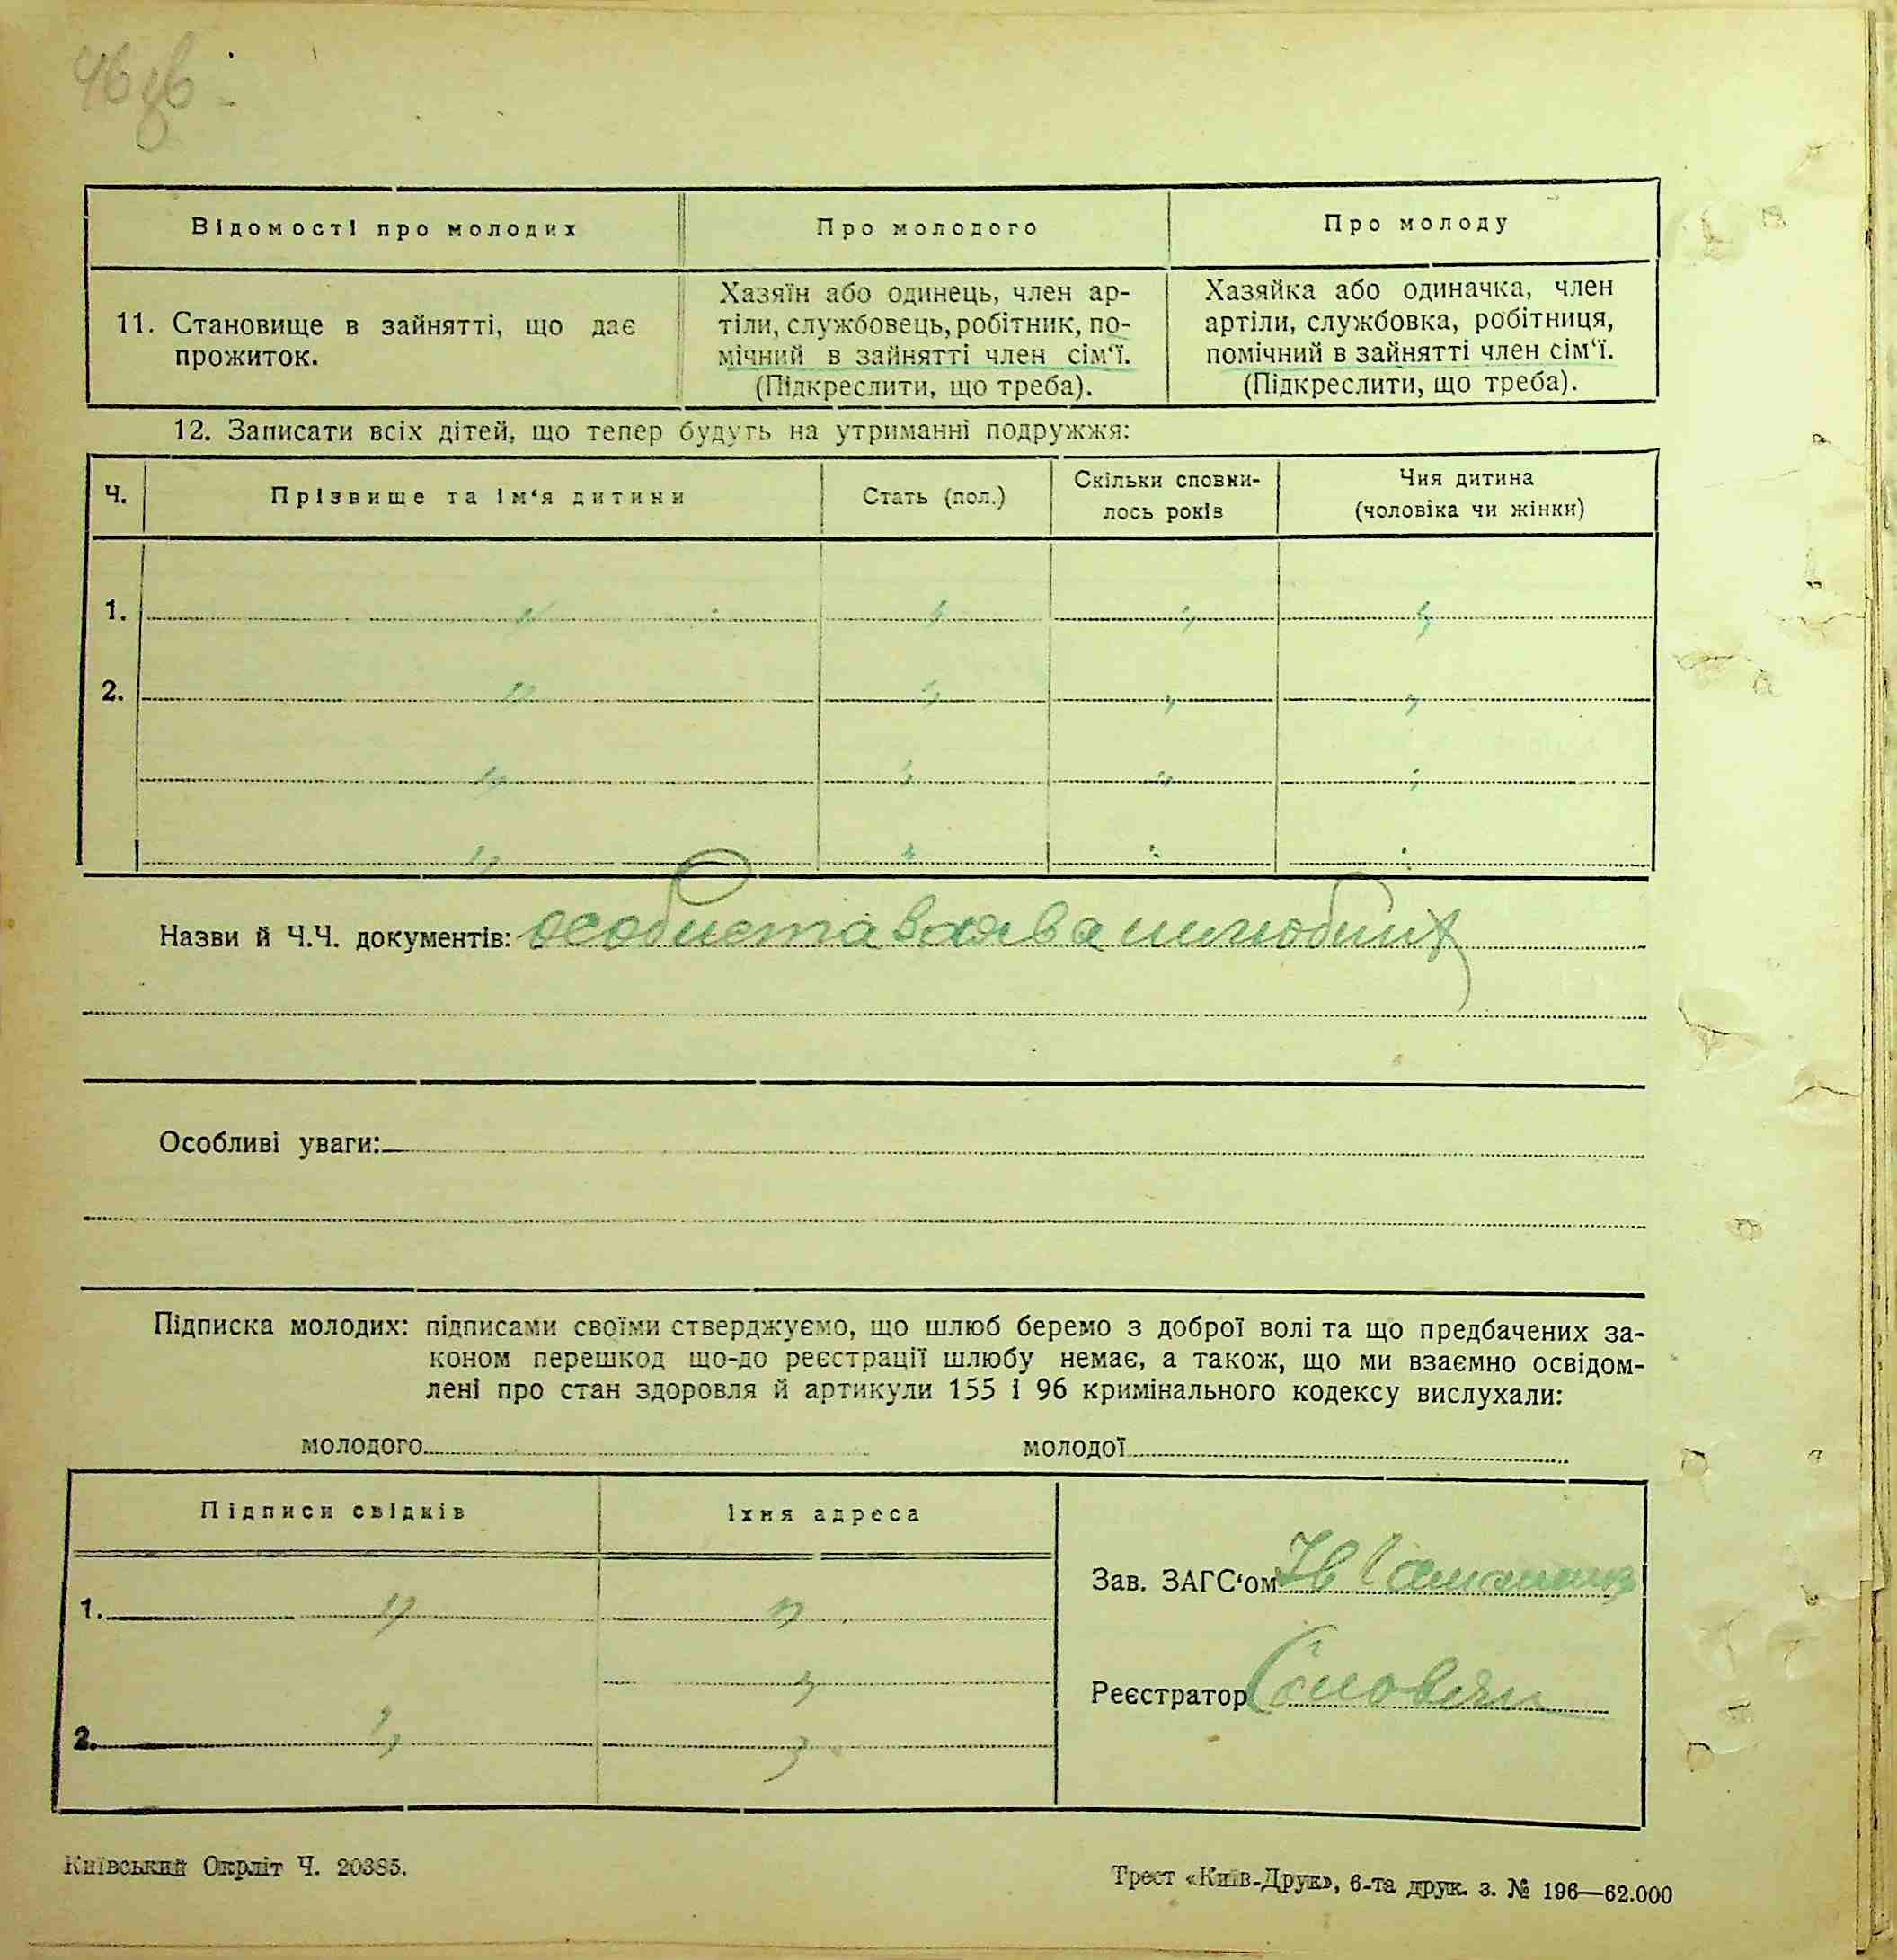 Відомості про молодих
Про молодого
Про молоду
11. Становище в зайнятті, що дає
прожиток.
Хазяїн або одинець, член ар-
тіли, службовець, робітник, по-
мічний в зайнятті член сім‘ї.
(Підкреслити, що треба).
Хазяйка або одиначка, член
артіли, службовка, робітниця,
помічний в зайнятті член сім‘ї.
(Підкреслити, що треба).
12. Записати всіх дітей, що тепер будуть на утриманні подружжя:
Ч.
Прізвище та ім‘я дитини
Стать (пол.)
Скільки сповни-
лось років
Чия дитина
(чоловіка чи жінки)
1.
2.
Назви й Ч.Ч. документів: особиста заява шлюбних
Особливі уваги:
Підписка молодих: підписами своїми стверджуємо, що шлюб беремо з доброї волі та що предбачених за-
коном перешкод що-до реєстрації шлюбу немає, а також, що ми взаємно освідом-
лені про стан здоровля й артикули 155 і 96 кримінального кодексу вислухали:
молодого
молодої
Підписи свідків
Їхня адреса
1.
2.
Зав. ЗАГС‘ом
Реєстратор
Київський Окрліт Ч. 20385.
Трест «Київ-Друк», 6-та друк. з. № 196—62.000